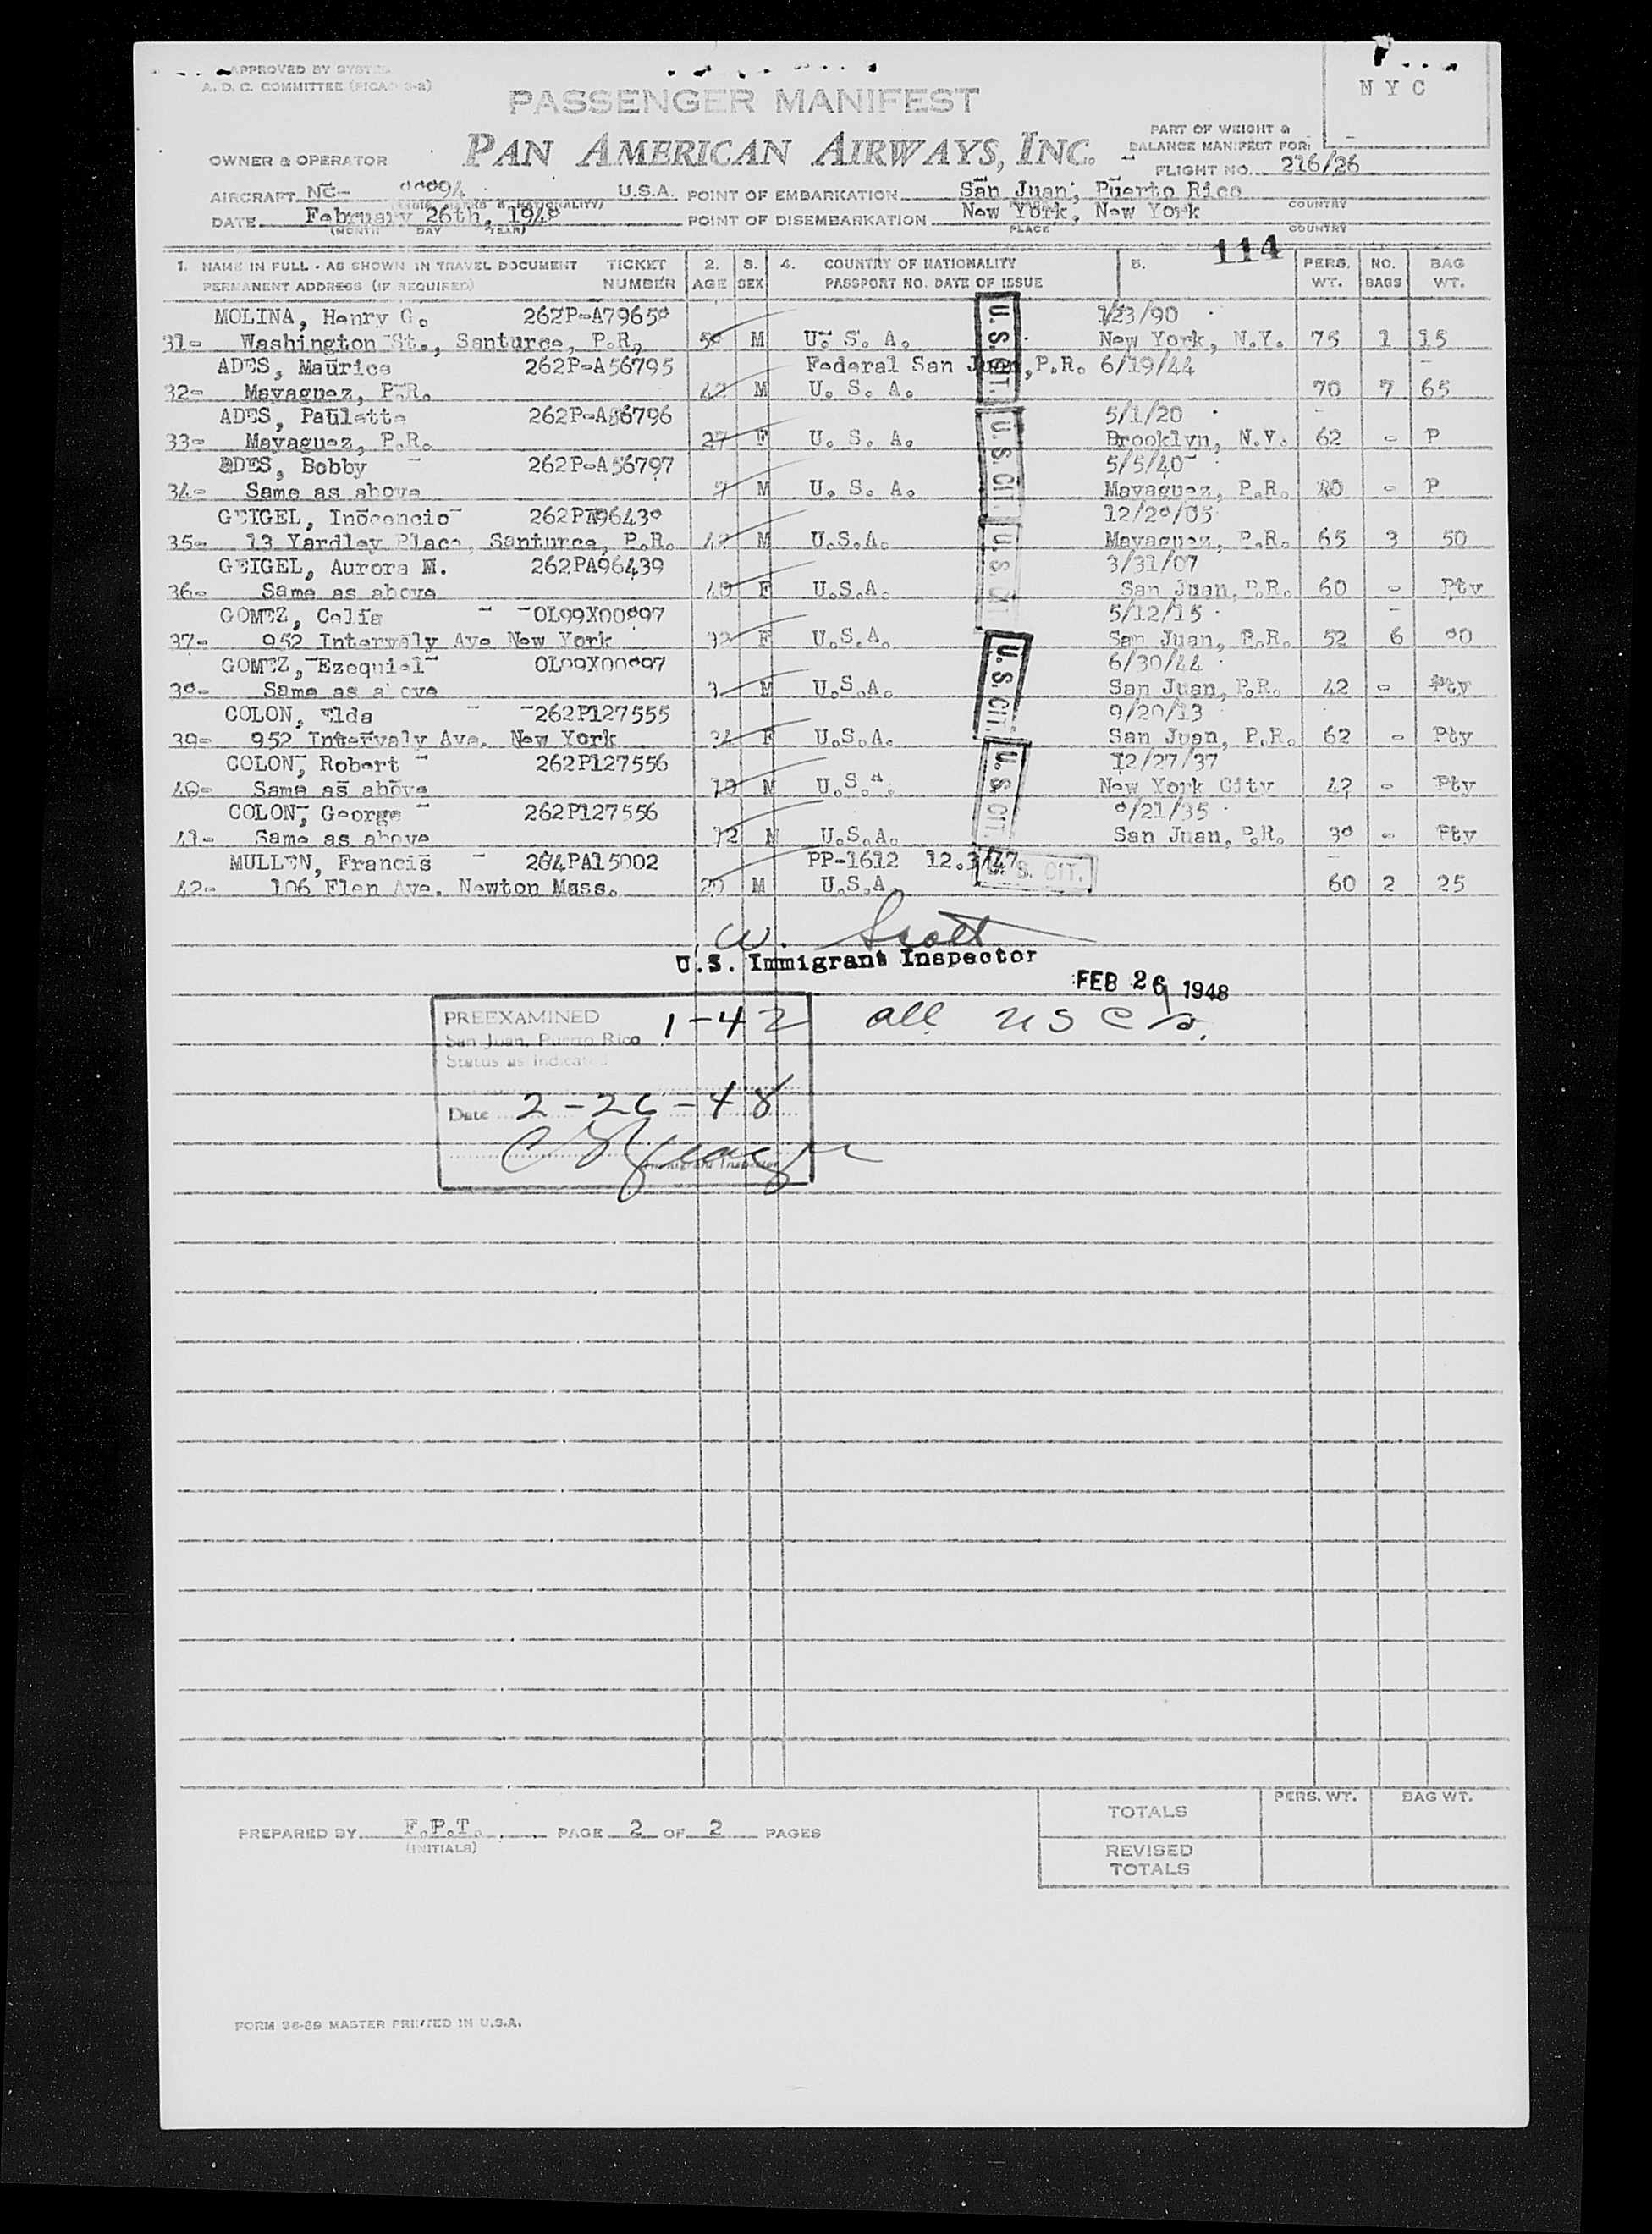 APPROVED BY
A. D. C. COMMITTEE
PASSENGER MANIFEST
N Y C
PAN AMERICAN AIRWAYS, INC.
PART OF WEIGHT &
BALANCE MANIFEST FOR:
OWNER & OPERATOR
FLIGHT NO. 216/26
AIRCRAFT NC- U.S.A. POINT OF EMBARKATION San Juan, Puerto Rico
COUNTRY
DATE February 26th, 1948 POINT OF DISEMBARKATION New York, New York
(MONTH DAY YEAR) PLACE COUNTRY
114
1. NAME IN FULL - AS SHOWN IN TRAVEL DOCUMENT TICKET 2. 3. 4. COUNTRY OF NATIONALITY 5. PERS. NO. BAG
PERMANENT ADDRESS (IF REQUIRED) NUMBER AGE SEX PASSPORT NO. DATE OF ISSUE WT. BAGS WT.
MOLINA, Henry G. 262P-A79658 /23/90
31- Washington St., Santurce, P.R. M U. S. A. New York, N.Y. 75 1 15
ADES, Maurice 262P-A56795 Federal San Juan, P.R. 6/19/44
32- Mayaguez, P.R. 42 M U. S. A. 70 7 65
ADES, Paulette 262P-A56796 5/1/20
33- Mayaguez, P.R. 27 F U. S. A. Brooklyn, N.Y. 62 - P
ADES, Bobby 262P-A56797 5/5/40
34- Same as above 7 M U. S. A. Mayaguez, P.R. - P
GEIGEL, Inocencio 12/28/05
35- 13 Yardley Place, Santurce, P.R. 42 M U.S.A. Mayaguez, P.R. 65 3 50
GEIGEL, Aurora M. 262PA96439 3/31/07
36- Same as above 40 F U.S.A. San Juan, P.R. 60 - Pty
GOMEZ, Celia OL99X00897 5/12/15
37- 952 Intervaly Ave New York 32 F U.S.A. San Juan, P.R. 52 6 80
GOMEZ, Ezequiel OL99X00897 6/30/44
38- Same as above 3 M U.S.A. San Juan, P.R. 42 - Pty
COLON, Elda 262P127555 9/20/13
39- 952 Intervaly Ave. New York 34 F U.S.A. San Juan, P.R. 62 - Pty
COLON, Robert 262P127556 12/27/37
40- Same as above 10 M U.S.A. New York City 42 - Pty
COLON, George 262P127556 8/21/35
41- Same as above 12 M U.S.A. San Juan, P.R. 38 - Pty
MULLEN, Francis 264PA15002 PP-1612 12.3/47
42- 106 Elen Ave. Newton Mass. 20 M U.S.A. 60 2 25
U. S. CIT.
U. S. CIT.
U. S. CIT.
U. S. CIT.
U. S. CIT.
U. S. CIT.
W. Scott
U.S. Immigrant Inspector
FEB 26 1948
PREEXAMINED 1-42 all USCs.
San Juan, Puerto Rico
Status as Indicated
Date 2-26-48
Immigrant Inspector
PERS. WT. BAG WT.
TOTALS
PREPARED BY F.P.T. PAGE 2 OF 2 PAGES
(INITIALS)
REVISED
TOTALS
FORM 36-89 MASTER PRINTED IN U.S.A.